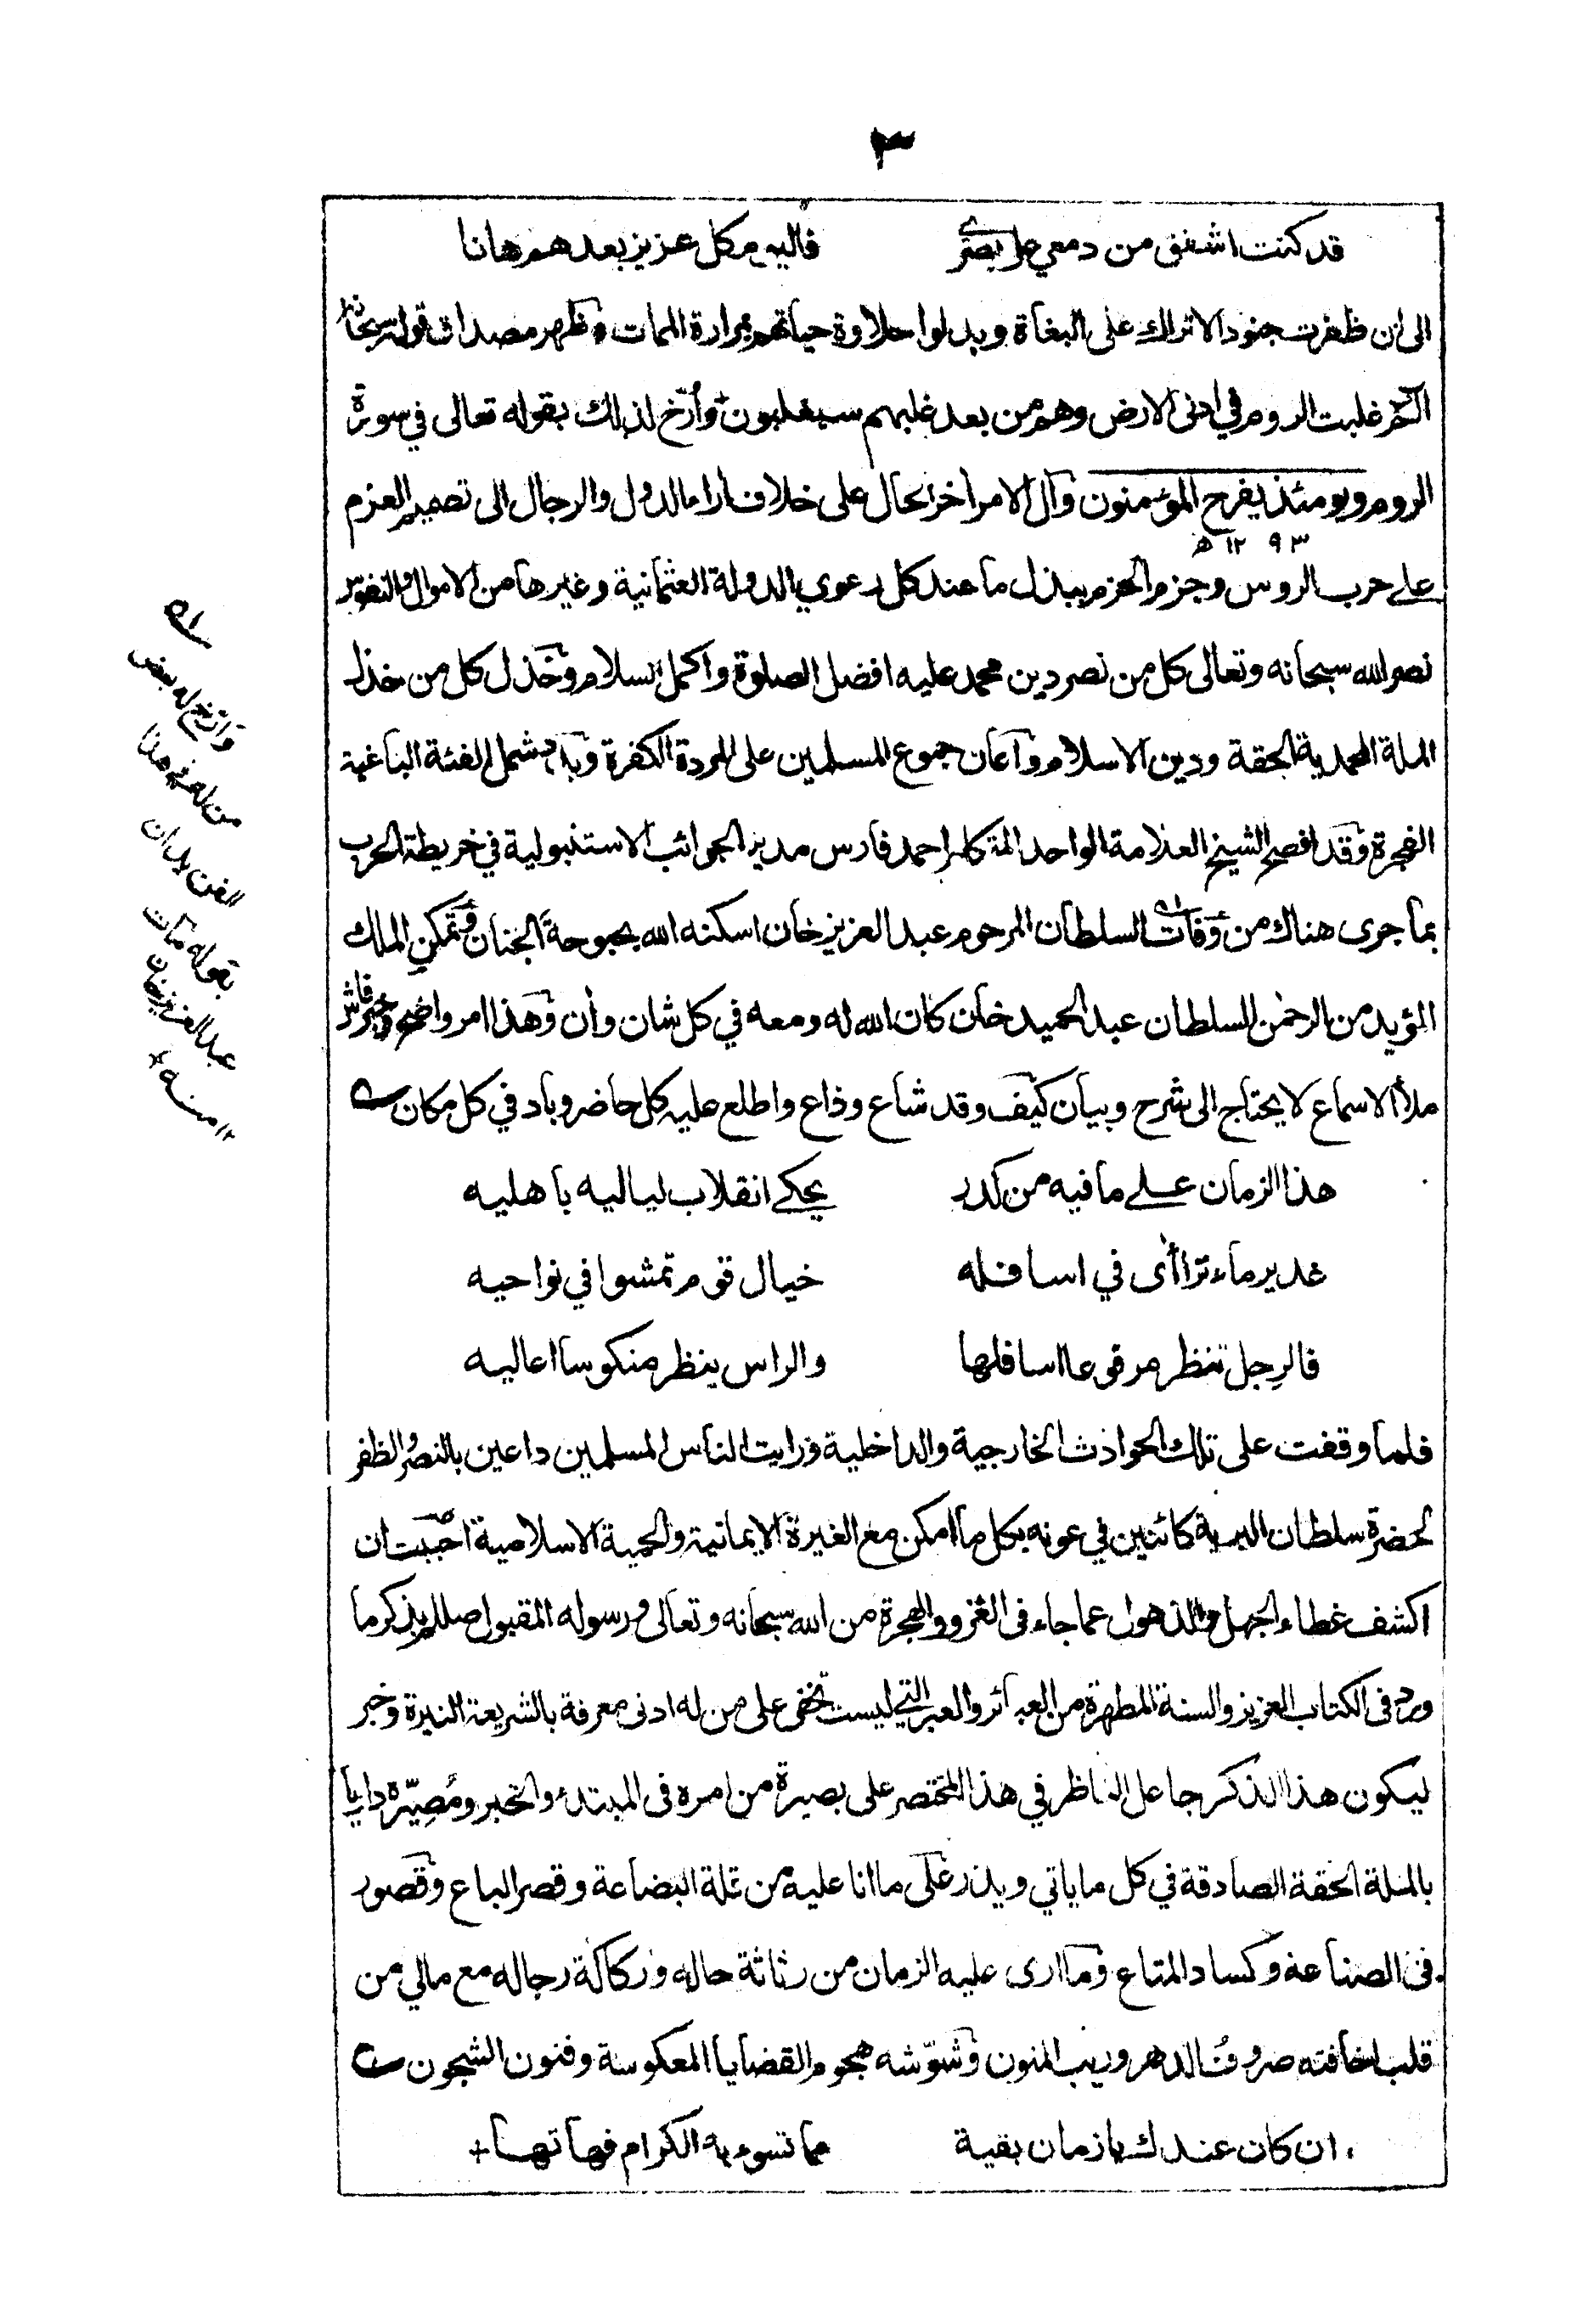 ٣
قد كنت اشفق من دمعي على بصري فاليوم كل عزيز بعدهم هانا
الى ان ظفرت جنود الاتراك على البغاة وبدلوا حلاوة حياتهم بمرارة الممات وظهر مصداق قوله سبحانه
الم غلبت الروم في ادنى الارض وهم من بعد غلبهم سيغلبون وأرّخ لذلك بقوله تعالى في سورة
الروم ويومئذ يفرح المؤمنون وآل الامر اخر الحال على خلاف اراء الدول والرجال الى تصميم العزم
١٢٩٣ هـ
على حرب الروس وجزم الحزم ببذل ما عند كل رعوي بالدولة العثمانية وغيرها من الاموال والنفوس
نصر الله سبحانه وتعالى كل من نصر دين محمد عليه افضل الصلوة واكمل السلام وخذل كل من خذل
الملة المحمدية الحقة ودين الاسلام وآعان جموع المسلمين على المردة الكفرة وبدد شمل الفئة الباغية
الفجرة وقد افصح الشيخ العلامة الواحد المتكلم احمد فارس مدير الجوائب الاستنبولية في خريطة الحرب
بما جرى هناك من وفات السلطان المرحوم عبد العزيز خان اسكنه الله بحبوحة الجنان وتمكن الملك
المؤيد من الرحمن السلطان عبد الحميد خان كان الله له ومعه في كل شان وأن وهذا امر واضح وخبر فاش
ملأ الاسماع لا يحتاج الى شرح وبيان كيف وقد شاع وذاع واطلع عليه كل حاضر وباد في كل مكان
هذا الزمان على ما فيه من كدر يحكي انقلاب لياليه باهليه
غدير ماء تراأى في اسافله خيال قوم تمشوا في نواحيه
فالرجل تنظر مرفوعا اسافلها والراس ينظر منكوسا اعاليه
فلما وقفت على تلك الحوادث الخارجية والداخلية ورايت الناس المسلمين داعين بالنصر والظفر
لحضرة سلطان البرية كائنين في عونه بكل ما امكن مع الغيرة الايمانية والحمية الاسلامية احببت ان
اكشف غطاء الجهل والذهول عما جاء فى الغزو والهجرة من الله سبحانه وتعالى ورسوله المقبول صللم بذكر ما
ورد فى الكتاب العزيز والسنة المطهرة من العبائر والعبر التي ليست تخفى على من له ادنى معرفة بالشريعة النيرة وخبر
ليكون هذا الذكر جاعل الناظر في هذا المختصر على بصيرة من امره فى المبتدء والخبر ومُصيّره دايا
بالملة الحقة الصادقة في كل ما ياتي ويذر على ما انا عليه من قلة البضاعة وقصر الباع وقصور
فى الصناعة وكساد المتاع وما ارى عليه الزمان من رثاثة حاله وركاكة رجاله مع مالي من
قلب اخافته صروف الدهر وريب المنون وشوّشه هجوم القضايا المعكوسة وفنون الشجون
ان كان عندك يا زمان بقية مما تسوء به الكرام فهاتها +
وارّخ له بعض
من له في هذا
الفن يدان
بقوله مات
عبد العزيز خان
١٢ منه